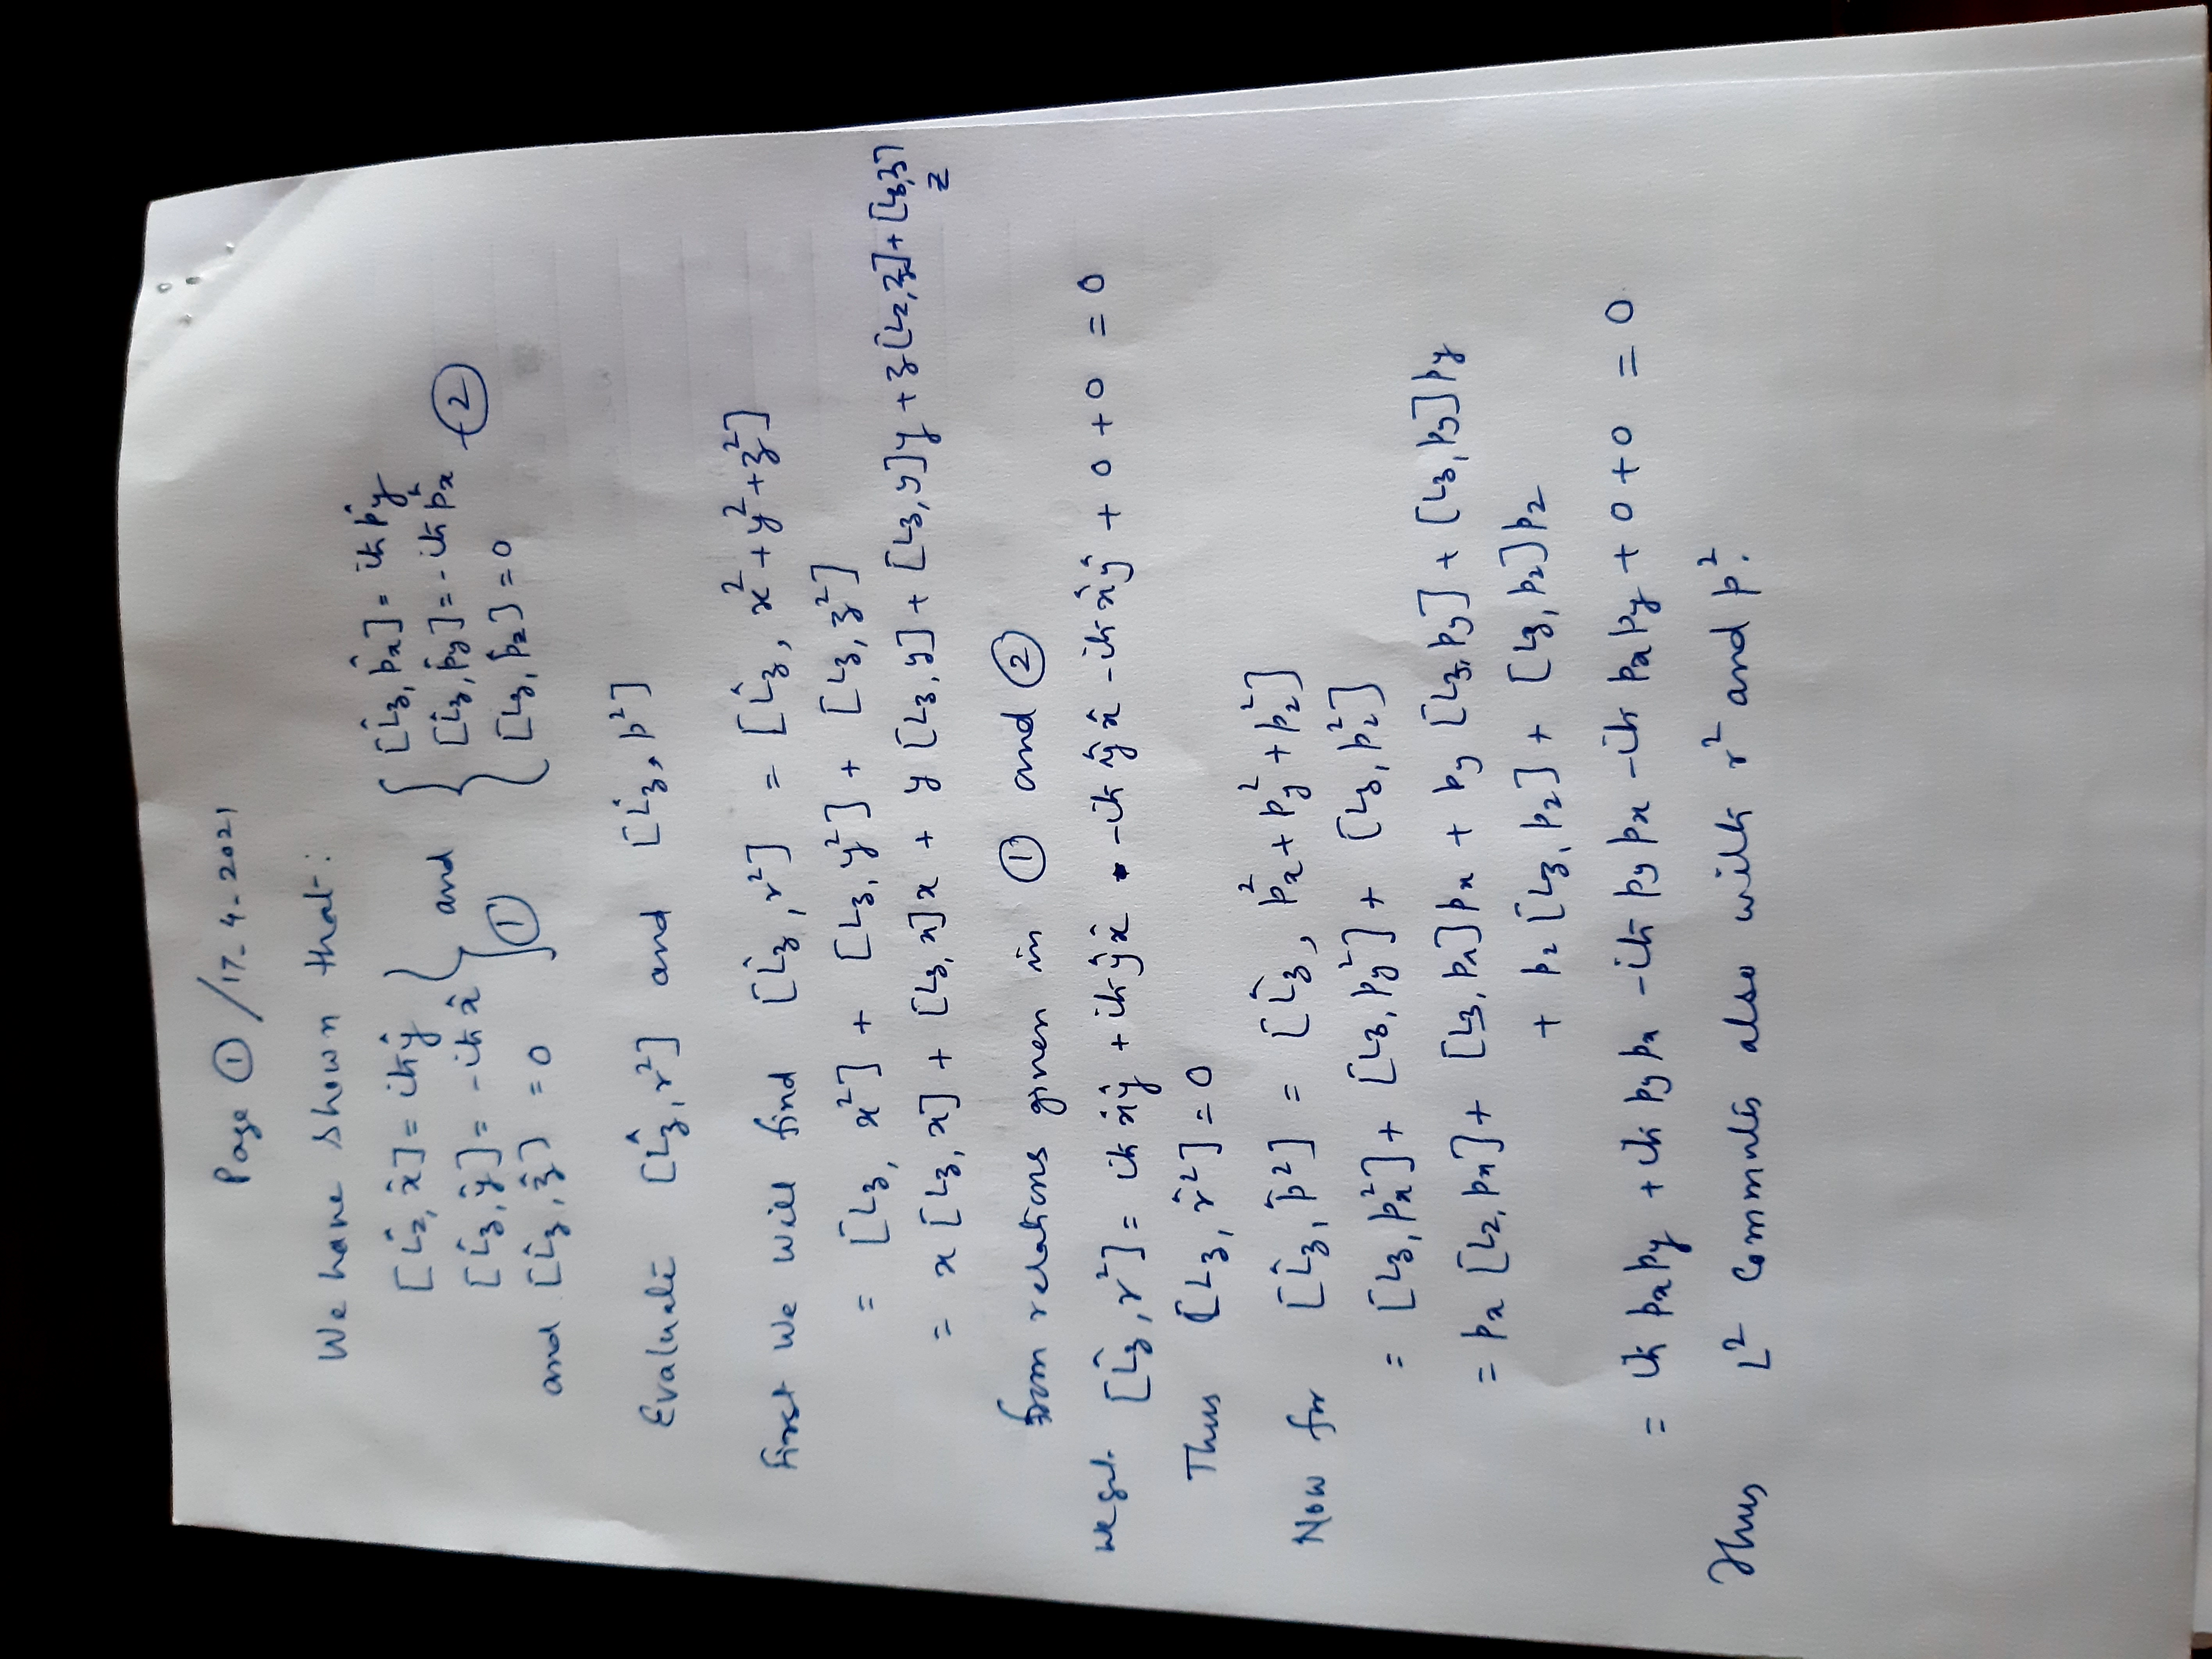 Page ① / 17-4-2021
We have shown that:
[L̂z, x̂] = iħŷ
[L̂z, ŷ] = -iħx̂
and [L̂z, ẑ] = 0 } ①
and
{ [L̂z, p̂x] = iħp̂y
[L̂z, p̂y] = -iħp̂x
[L̂z, p̂z] = 0 — ②
Evaluate [L̂z, r²] and [L̂z, p²]
First we will find [L̂z, r²] = [L̂z, x²+y²+z²]
= [Lz, x²] + [Lz, y²] + [Lz, z²]
= x[Lz, x] + [Lz, x]x + y[Lz, y] + [Lz, y]y + z[Lz, z] + [Lz, z]z
from relations given in ① and ②
we get [L̂z, r²] = iħx̂ŷ + iħŷx̂ - iħŷx̂ - iħx̂ŷ + 0 + 0 = 0
Thus [Lz, r̂²] = 0
Now for [L̂z, p̂²] = [L̂z, px²+py²+pz²]
= [Lz, px²] + [Lz, py²] + [Lz, pz²]
= px[Lz, px] + [Lz, px]px + py[Lz, py] + [Lz, py]py
+ pz[Lz, pz] + [Lz, pz]pz
= iħ px py + iħ py px - iħ py px - iħ px py + 0 + 0 = 0
Thus L² commutes also with r² and p².